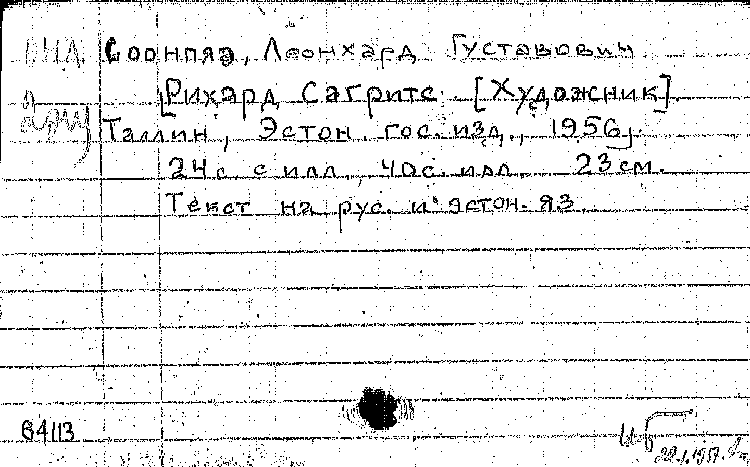 Соонпяэ, Леонхард Густавович
Рихард Сагритс. [Художник].
Таллин, Эстон. гос. изд., 1956.
24 с. с илл., 40 с. илл. 23 см.
Текст на рус. и эстон. яз.
64113